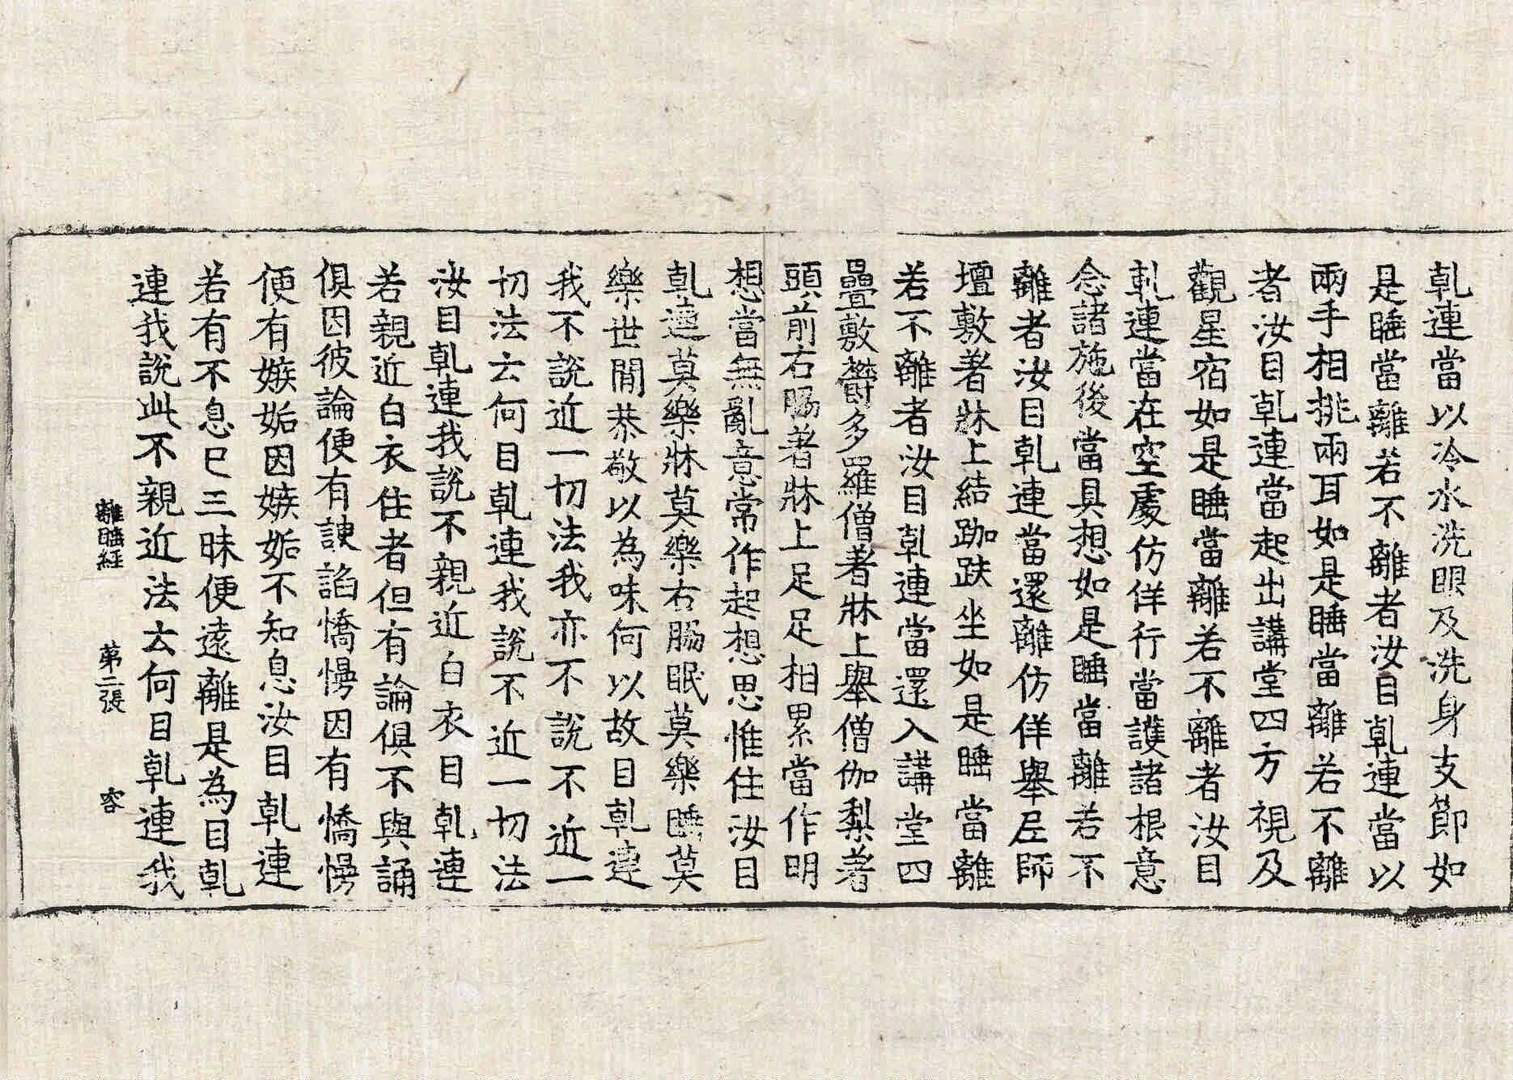 乹連當以冷水洗眼及洗身支節如
是睡當離若不離者汝目乹連當以
兩手相挑兩耳如是睡當離若不離
者汝目乹連當起出講堂四方視及
觀星宿如是睡當離若不離者汝目
乹連當在空處仿佯行當護諸根意
念諸施後當具想如是睡當離若不
離者汝目乹連當還離仿佯舉尼師
壇敷著牀上結跏趺坐如是睡當離
若不離者汝目乹連當還入講堂四
疊敷欝多羅僧著牀上舉僧伽梨著
頭前右脇著牀上足足相累當作明
想當無亂意常作起想思惟住汝目
乹連莫樂牀莫樂右脇眠莫樂睡莫
樂世間恭敬以為味何以故目乹連
我不說近一切法我亦不說不近一
切法云何目乹連我說不近一切法
汝目乹連我說不親近白衣目乹連
若親近白衣住者但有論俱不與誦
俱因彼論便有諛諂憍慢因有憍慢
便有嫉妬因嫉妬不知息汝目乹連
若有不息已三昧便遠離是為目乹
連我說此不親近法云何目乹連我
離睡經 第二張 容